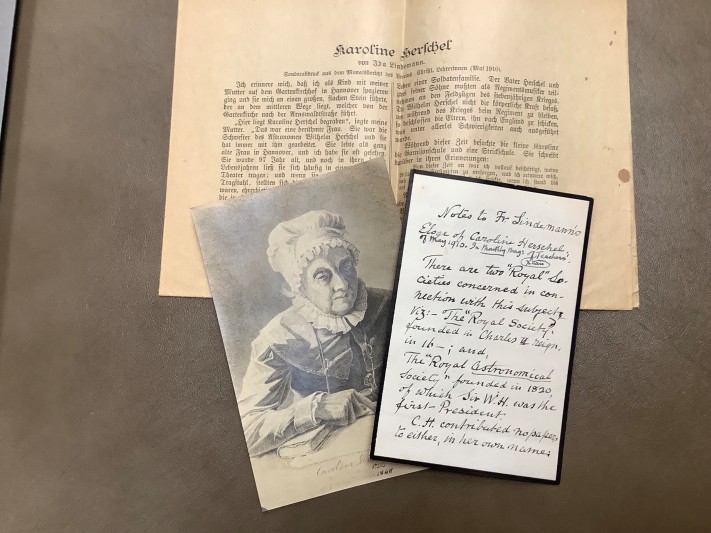 Karoline Herschel
von Ida Lindemann.
Sonderabdruck aus dem Monatsbericht des Vereins Christl. Lehrerinnen (Mai 1910).
Ich erinnere mich, daß ich als Kind mit meiner
Mutter auf dem Gartenkirchhof in Hannover spazieren
ging und sie mich an einen großen, flachen Stein führte,
der an dem mittleren Wege liegt, welcher von der
Gartenkirche nach der Arnswaldtstraße führt.
„Hier liegt Karoline Herschel begraben“, sagte meine
Mutter. „Das war eine berühmte Frau. Sie war die
Schwester des Astronomen Wilhelm Herschel und sie
hat immer mit ihm gearbeitet. Sie lebte als ganz
alte Frau in Hannover, und ich habe sie oft gesehen.
Sie wurde 97 Jahr alt, und noch in ihren
Lebensjahren ließ sie sich häufig in
Theater tragen; und wenn
Tragstuhl, stellten sich
waren,
Leben einer Soldatenfamilie. Der Vater Herschel und
seiner Söhne mußten als Regimentsmusiker teil-
nehmen an den Feldzügen des siebenjährigen Krieges.
Da Wilhelm Herschel nicht die körperliche Kraft besaß,
während des Krieges beim Regiment zu bleiben,
beschlossen die Eltern, ihn nach England zu schicken,
unter allerlei Schwierigkeiten auch ausgeführt
wurde.
Während dieser Zeit besuchte die kleine Karoline
die Garnisonschule und eine Strickschule. Sie schreibt
darüber in ihren Erinnerungen:
Notes to Fr Lindemann's
Eloge of Caroline Herschel
of May 1910. In Monthly Mag. of Teachers'
There are two "Royal" So-
cieties concerned in con-
nection with this subject;
Viz:- The "Royal Society",
founded in Charles II reign,
in 16-; and,
The "Royal Astronomical
Society," founded in 1820,
of which Sir W.H. was the
first President
C.H. contributed no paper,
to either, in her own name;